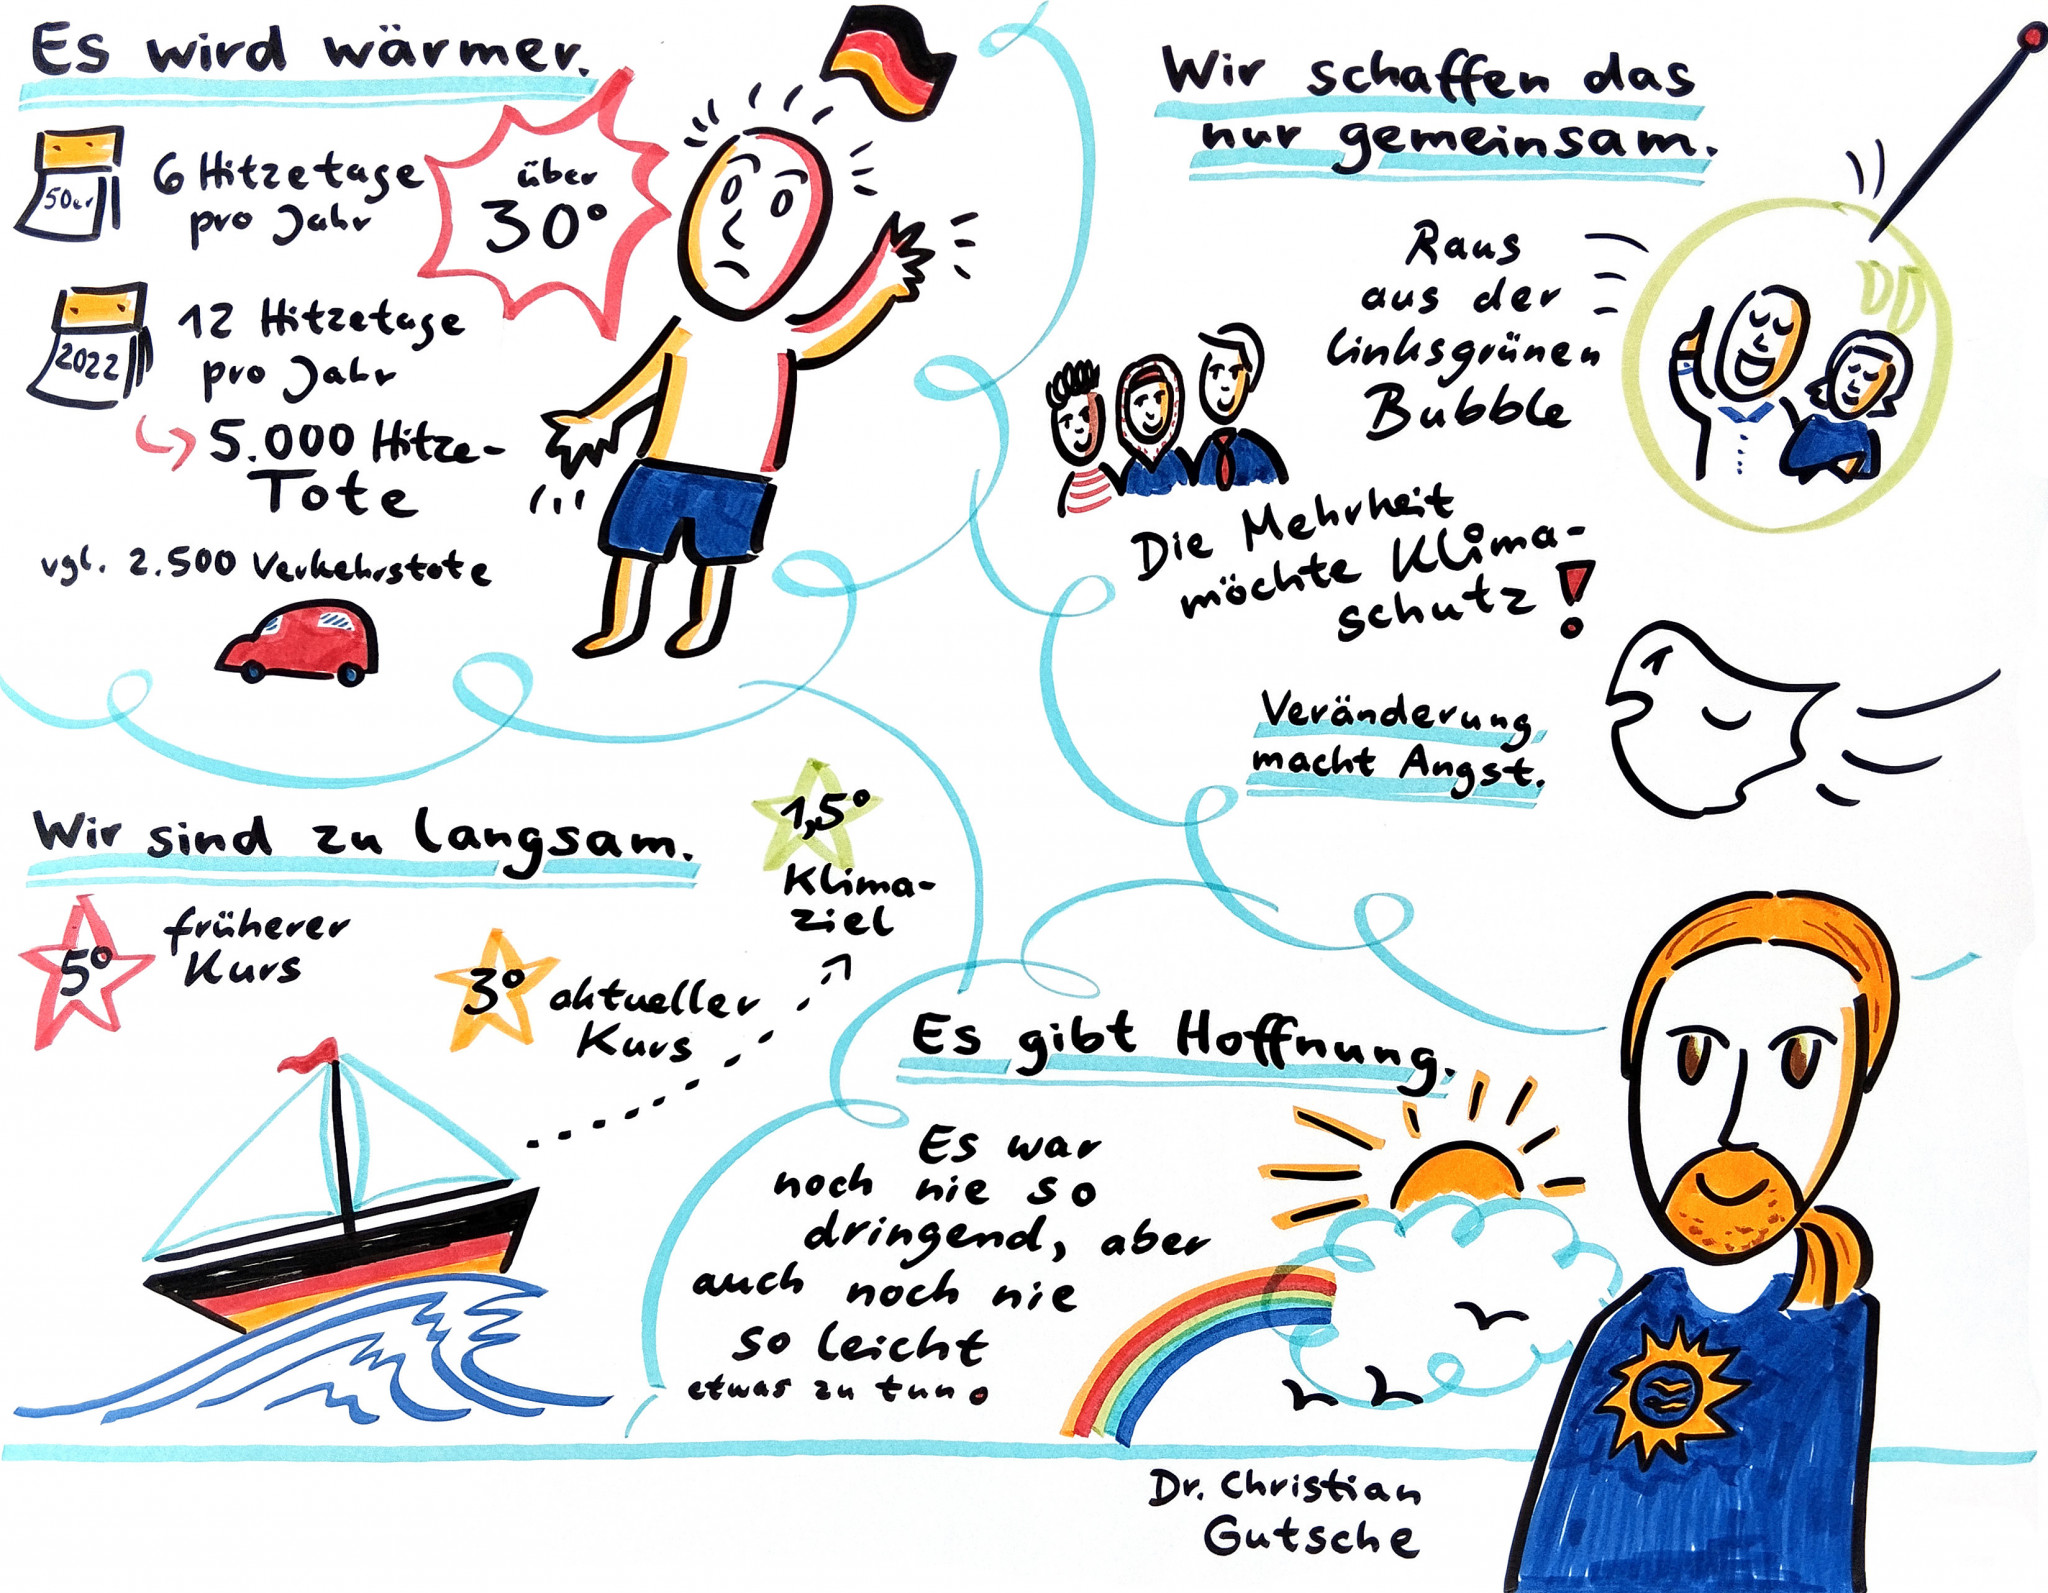 Es wird wärmer.
50er
6 Hitzetage
pro Jahr
über
30°
2022
12 Hitzetage
pro Jahr
5.000 Hitze-
Tote
vgl. 2.500 Verkehrstote
Wir schaffen das
nur gemeinsam.
Raus
aus der
linksgrünen
Bubble
Die Mehrheit
möchte Klima-
schutz!
Veränderung
macht Angst.
Wir sind zu langsam.
5°
früherer
Kurs
3°
aktueller
Kurs
1,5°
Klima-
ziel
Es gibt Hoffnung.
Es war
noch nie so
dringend, aber
auch noch nie
so leicht
etwas zu tun.
Dr. Christian
Gutsche